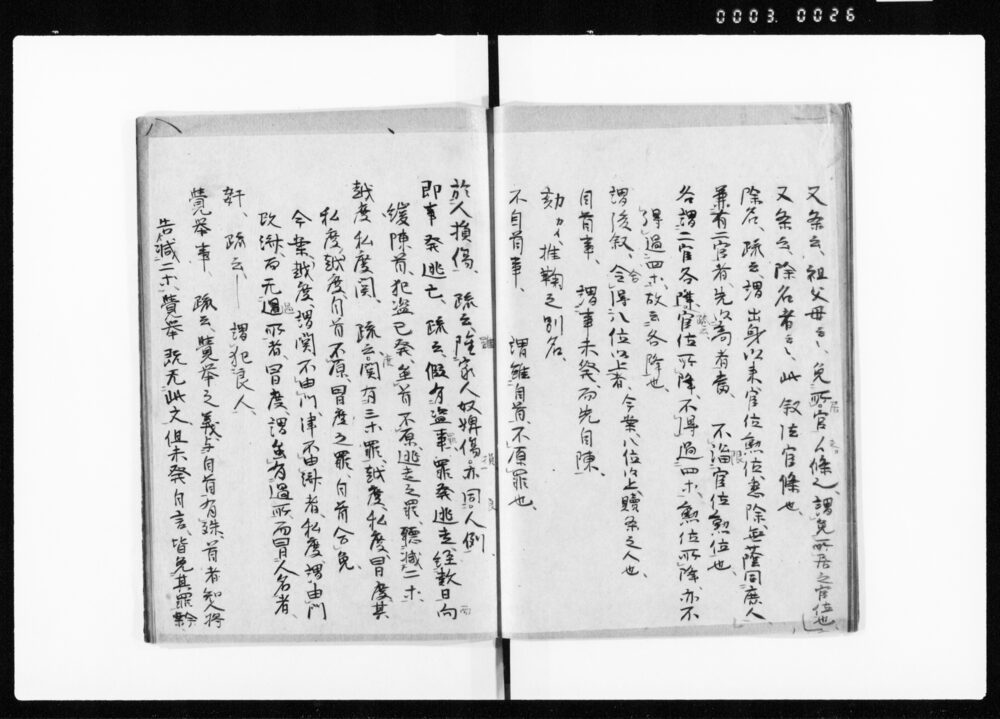 0003 0026
又条云、祖父母云々、免所居官人條之、謂免所居之官位也、
又条云、除名者云々、此叙位官條也、
除名、疏云、謂出身以来官位勲位悉除、無蔭同庶人
兼有二官者、先以高者當、 不論官位勲位也、
各謂二官各降、官位所降、不得過四木、勲位所降亦不
得過四木、故云各降也、
謂後叙、合得八位以上者、今案八位以上贖条之人也、
自首事、 謂事未発而先自陳、
劾 推鞠之別名、
不自首事、 謂雖自首、不原罪也、
於人損傷、 疏云、家人奴婢傷、亦同人例、
即事発逃亡、 疏云、假有盗事罪発逃走、経数日向
後陳首、犯盗已発、雖首不原、逃走之罪、聴減二木、
越度、私度関、 疏云、関有三木罪、越度、私度、冒度、其
私度、越度、自首不原、冒度之罪、自首合免、
今案、越度、謂関不由門、津不由済者、私度、謂由門
而无過所者、冒度、謂有過所而冒人名者、
奸、 疏云 謂犯良人、
覺挙事、 疏云、覺挙之義、与自首有殊、首者知人将
告減二木、覺挙既无此文、但未発自言、皆免其罪、